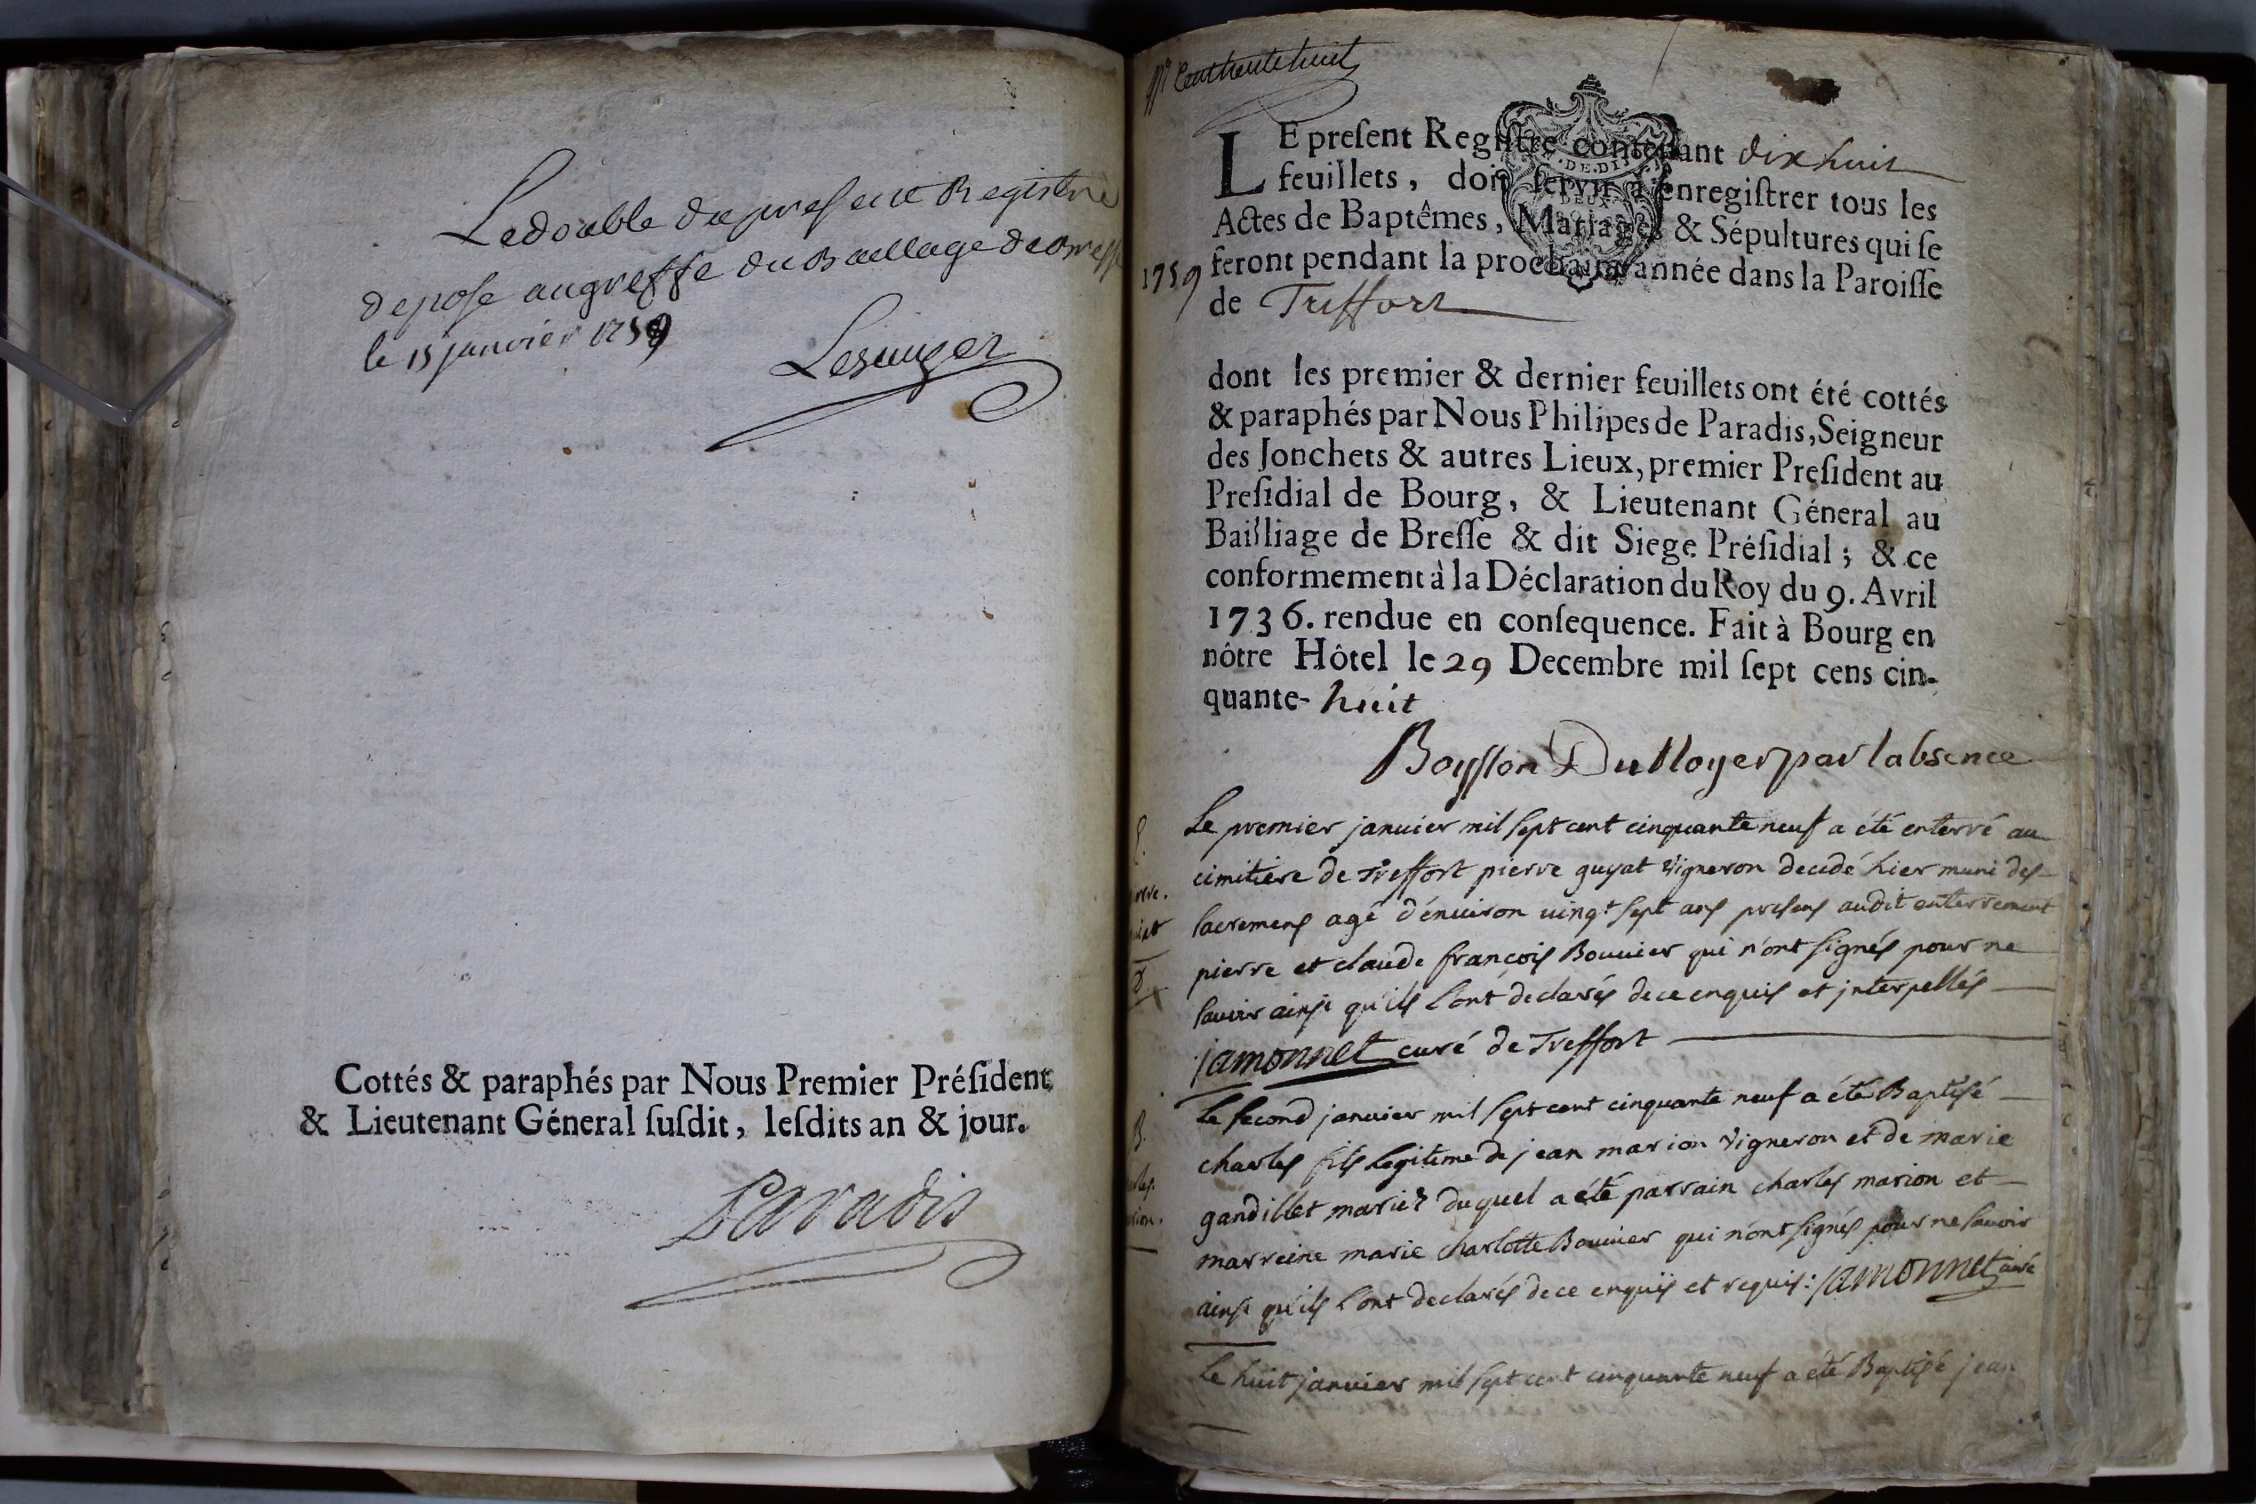 Le double du present Registre
depose au greffe du Baillage de Bresse
le 15 janvier 1759
Cottés & paraphés par Nous Premier Préſident
& Lieutenant Géneral ſuſdit, leſdits an & jour.
Paradis
Cent trente huit
LE preſent Regiſtre contenant dix huit
feuillets, doit ſervir à enregiſtrer tous les
Actes de Baptêmes, Mariages & Sépultures qui ſe
1759 feront pendant la prochaine année dans la Paroiſſe
de Treffort
dont les premier & dernier feuillets ont été cottés
& paraphés par Nous Philipes de Paradis, Seigneur
des Jonchets & autres Lieux, premier Preſident au
Preſidial de Bourg, & Lieutenant Géneral au
Bailliage de Breſſe & dit Siege Préſidial; & ce
conformement à la Déclaration du Roy du 9. Avril
1736. rendue en conſequence. Fait à Bourg en
nôtre Hôtel le 29 Decembre mil ſept cens cin-
quante-huit
par labsence
Le premier janvier mil sept cent cinquante neuf a été enterré au
cimitiere de Treffort pierre guyat vigneron decedé hier muni des
sacremens agé d'environ vingt sept ans presens audit enterrement
pierre et claude françois Bouvier qui n'ont signés pour ne
savoir ainsi qu'ils l'ont declarés de ce enquis et interpellés
jamonnet curé de Treffort
Le second janvier mil sept cent cinquante neuf a été Baptisé
charles fils legitime de jean marion vigneron et de marie
gandillet mariez duquel a été parrain charles marion et
marreine marie charlotte Bouvier qui n'ont signés pour ne savoir
ainsi qu'ils l'ont declarés de ce enquis et requis: jamonnet curé
Le huit janvier mil sept cent cinquante neuf a été Baptisé jean